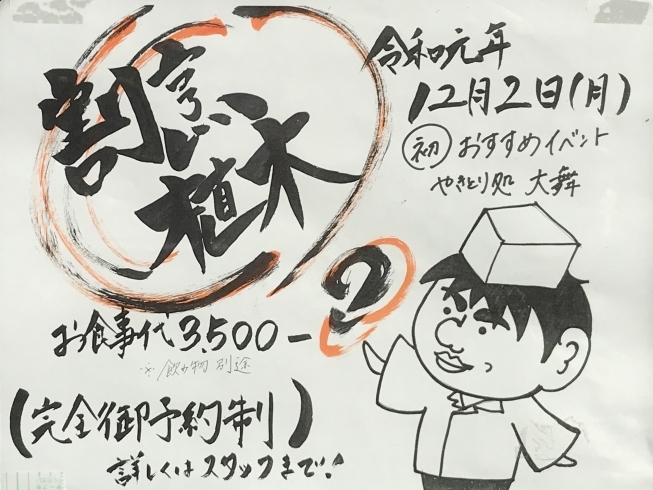 割烹
植木
?
令和元年
12月2日(月)
初 おすすめイベント
やきとり処 大舞
お食事代3,500ー
※飲み物別途
(完全御予約制)
詳しくはスタッフまで!